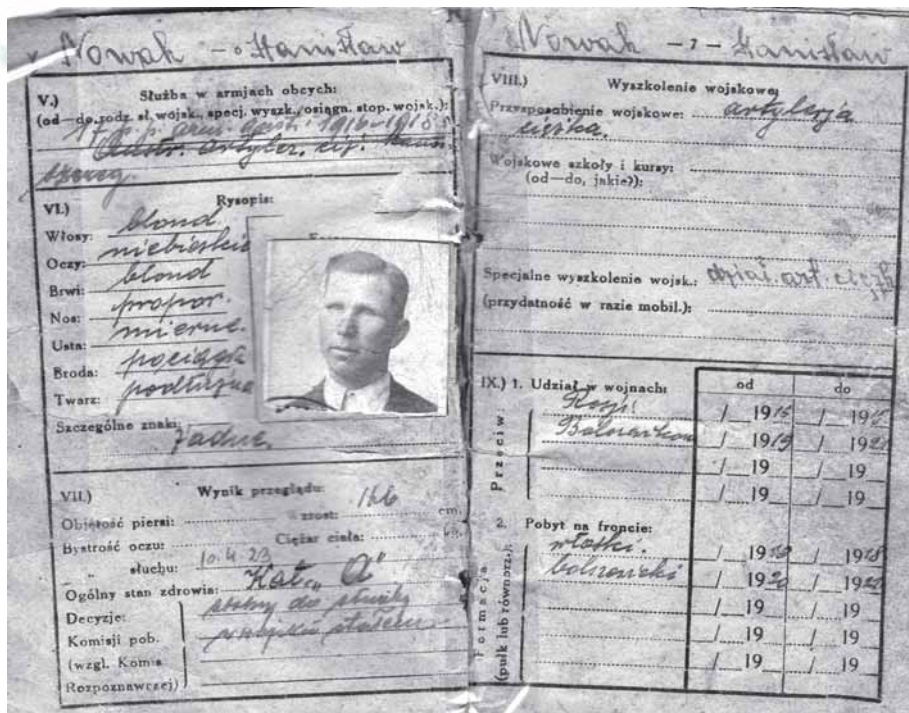 Nowak — 6 Stanisław
V.) Służba w armjach obcych:
(od—do, rodz. sł. wojsk., specj. wyszk., osiągn. stop. wojsk.):
17 p. p. 1916-1918 r.
Austr. artyler. cięż.
szereg.
VI.) Rysopis:
Włosy: blond
Oczy: niebieskie
Brwi: blond
Nos: propor.
Usta: mierne.
Broda: pociągła
Twarz: podłużna
Szczególne znaki: żadne.
VII.) Wynik przeglądu:
Objętość piersi: Wzrost: 166 cm.
Bystrość oczu: Ciężar ciała:
„ słuchu: 10.4.23
Ogólny stan zdrowia: Kat. „A"
Decyzje: zdolny do służby
Komisji pob. w wojsku stałem
(wzgl. Komis
Rozpoznawczej)
Nowak — 7 — Stanisław
VIII.) Wyszkolenie wojskowe:
Przysposobienie wojskowe: artylerja
ciężka.
Wojskowe szkoły i kursy:
(od—do, jakie?):
Specjalne wyszkolenie wojsk.: dział. art. ciężk
(przydatność w razie mobil.):
IX.) 1. Udział w wojnach: od do
Przeciw.
Rosji / 1915 / 1915
/ 1919 / 1921
/ 19 / 19
/ 19 / 19
2. Pobyt na froncie:
Formacja
(pułk lub równorz.):
włoski. / 19 / 1918
bolszewicki / 1920 / 192
/ 19 / 19
/ 19 / 19
/ 19 / 19